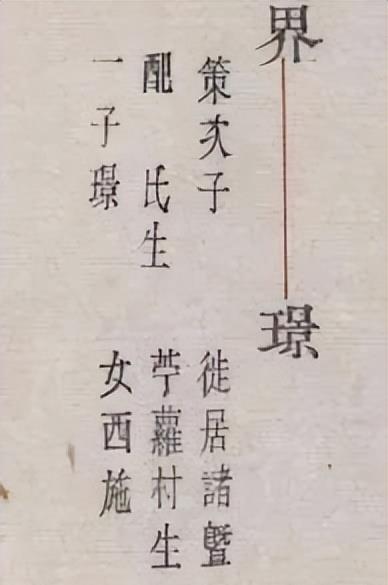 界
策次子
配 氏生
一子璟
璟
徙居諸暨
苧蘿村生
女西施